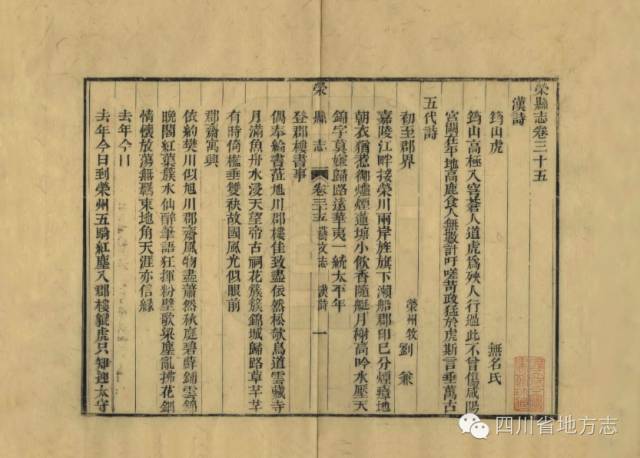 榮縣志卷三十五
漢詩
筠山虎　無名氏
筠山高極入穹蒼人道虎為殃人行過此不曾傷咸陽
宮闕在平地高鹿食人無數計吁嗟苛政猛於虎斯言垂萬古
五代詩
初至郡界　榮州牧劉兼
嘉陵江畔接榮川兩岸旌旗下瀨船郡印已分煙瘴地
朝衣猶惹御爐煙蓮塘小飲香隨艇月榭高吟水壓天
錦字莫嫌歸路遠華夷一統太平年
登郡樓書事
榮縣志　卷三十五　藝文志　漢詩　一
偶奉綸書蒞旭川郡樓佳致盡依然松欹鳥道雲藏寺
月滿魚舟水浸天望帝古祠花簇簇錦城歸路草芊芊
有時倚檻垂雙袂故國風光似眼前
郡齋寓興
依約樊川似旭川郡齋風物盡蕭然秋庭碧蘚鋪雲錦
晚閣紅葉簇水仙醉筆語狂揮粉壁歌梁塵亂拂花鈿
情懷放蕩無羈束地角天涯亦信緣
去年今日
去年今日到榮州五騎紅塵入郡樓貔虎只知迎太守
四川省地方志